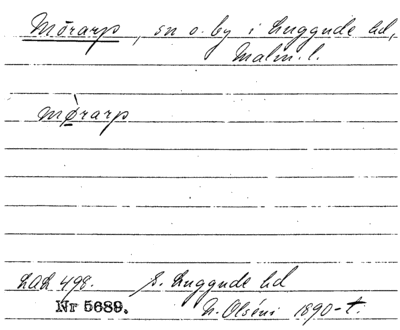 Mörarp, sn o. by i Luggude hd,
Malm. l.
mørarp
LAL 498. S. Luggude hd
Nr 5689. N. Olséni 1890-t.